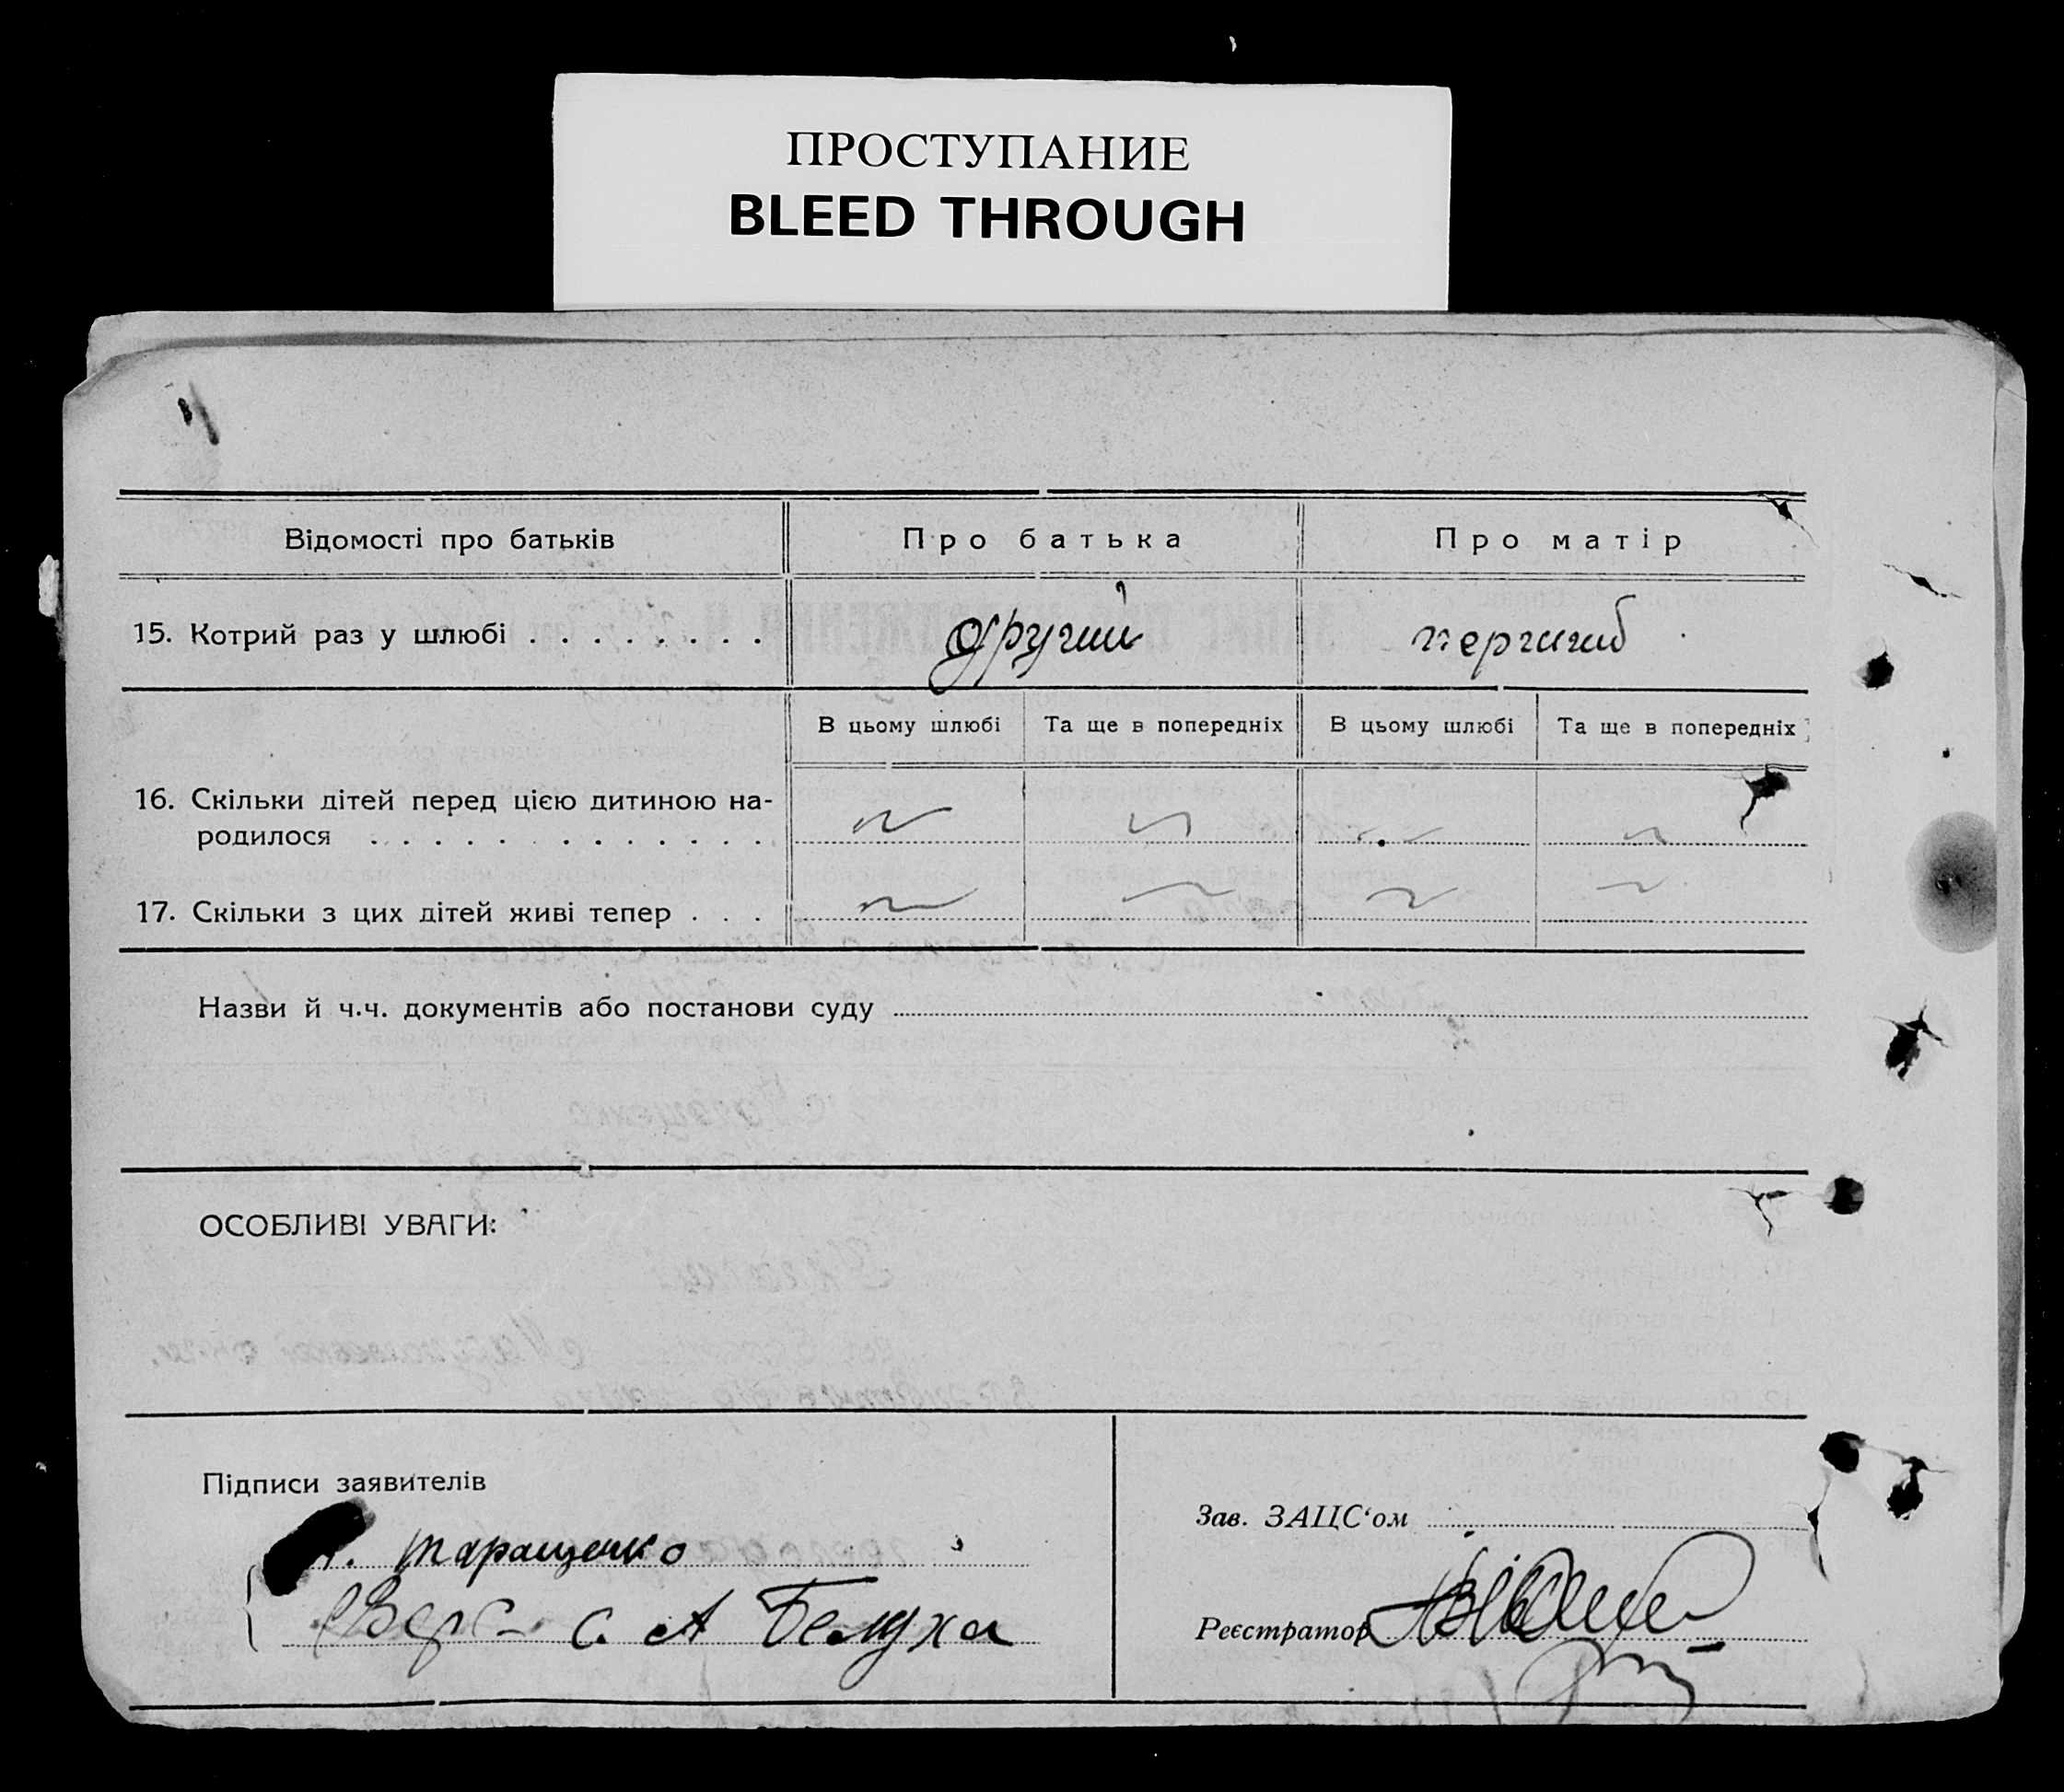 ПРОСТУПАНИЕ
BLEED THROUGH
Відомості про батьків
Про батька
Про матір
15. Котрий раз у шлюбі . . . . . . . .
другий
перший
В цьому шлюбі
Та ще в попередніх
В цьому шлюбі
Та ще в попередніх
16. Скільки дітей перед цією дитиною на-
родилося . . . . . . . . . . . . .
17. Скільки з цих дітей живі тепер . . .
Назви й ч.ч. документів або постанови суду
ОСОБЛИВІ УВАГИ:
Підписи заявителів
Таращенко
С. А Белуха
Зав. ЗАЦС‘ом
Реєстратор